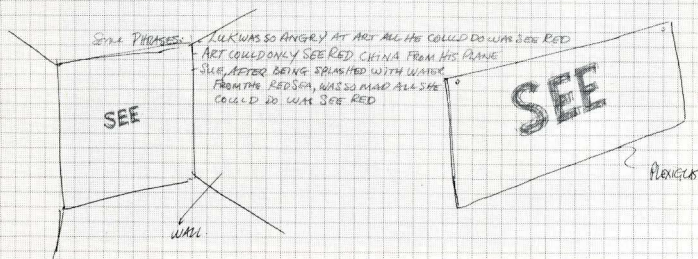 Some PHRASES: - LUK WAS SO ANGRY AT ART ALL HE COULD DO WAS SEE RED
- ART COULD ONLY SEE RED CHINA FROM HIS PLANE
- SUE, AFTER BEING SPLASHED WITH WATER
FROM THE RED SEA, WAS SO MAD ALL SHE
COULD DO WAS SEE RED
SEE
SEE
PLEXIGLAS
WALL